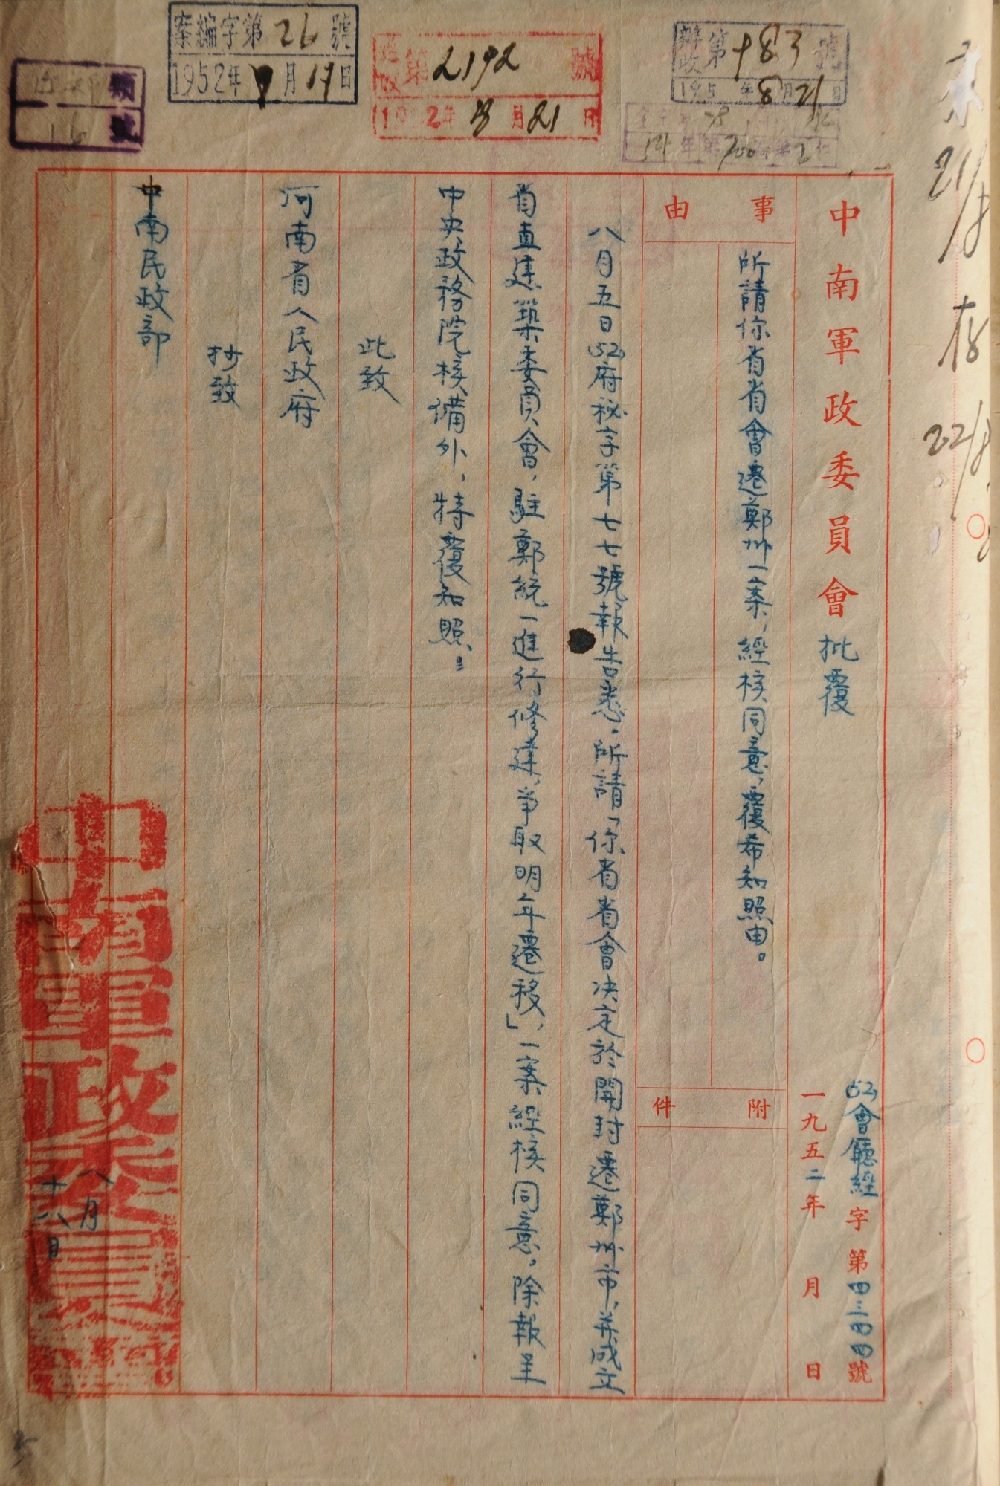 案編字第26號
1952年9月19日
類
16 號
收第2192號
1952年8月21日
收第983號
195 年8月21日
中南軍政委員會批覆
(52)會廳經字第四三四四號
一九五二年 月 日
事由
所請你省省會遷鄭州一案,經核同意,覆希知照由。
附件
八月五日(52)府秘字第七七號報告悉。所請「你省省會决定於開封遷鄭州市,并成立
省直建築委員會,駐鄭統一進行修建,爭取明年遷移」,一案經核同意,除報呈
中央政務院核備外,特覆知照。
此致
河南省人民政府
抄致
中南民政部
八月
十八日
中南軍政委員會印
21/8
22/8